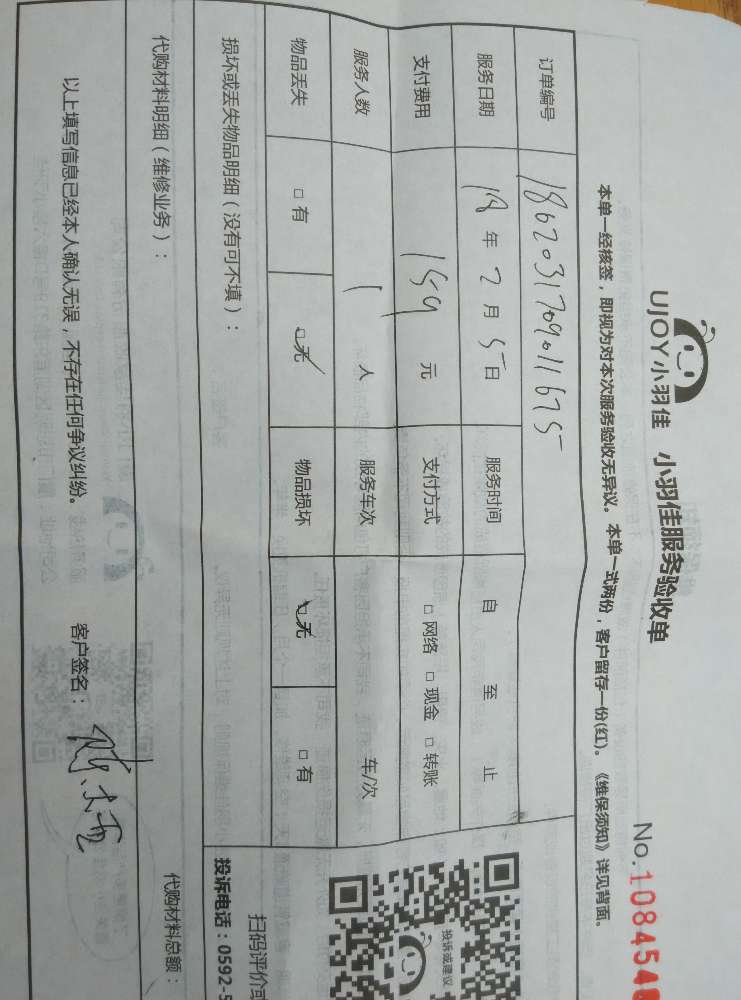 UJOY小羽佳 小羽佳服务验收单
No.108454
本单一经核签，即视为对本次服务验收无异议。本单一式两份，客户留存一份(红)。《维保须知》详见背面。
订单编号 1802031709011675
服务日期 18年2月5日 服务时间 自 至 止
支付费用 159元 支付方式 □网络 □现金 □转账
服务人数 1人 服务车次 车/次
物品丢失 □有 □无 物品损坏 □无 □有
损坏或丢失物品明细（没有可不填）：
代购材料明细（维修业务）：
代购材料总额：
以上填写信息已经本人确认无误，不存在任何争议纠纷。 客户签名：
投诉或建议
扫码评价或
投诉电话：0592-5